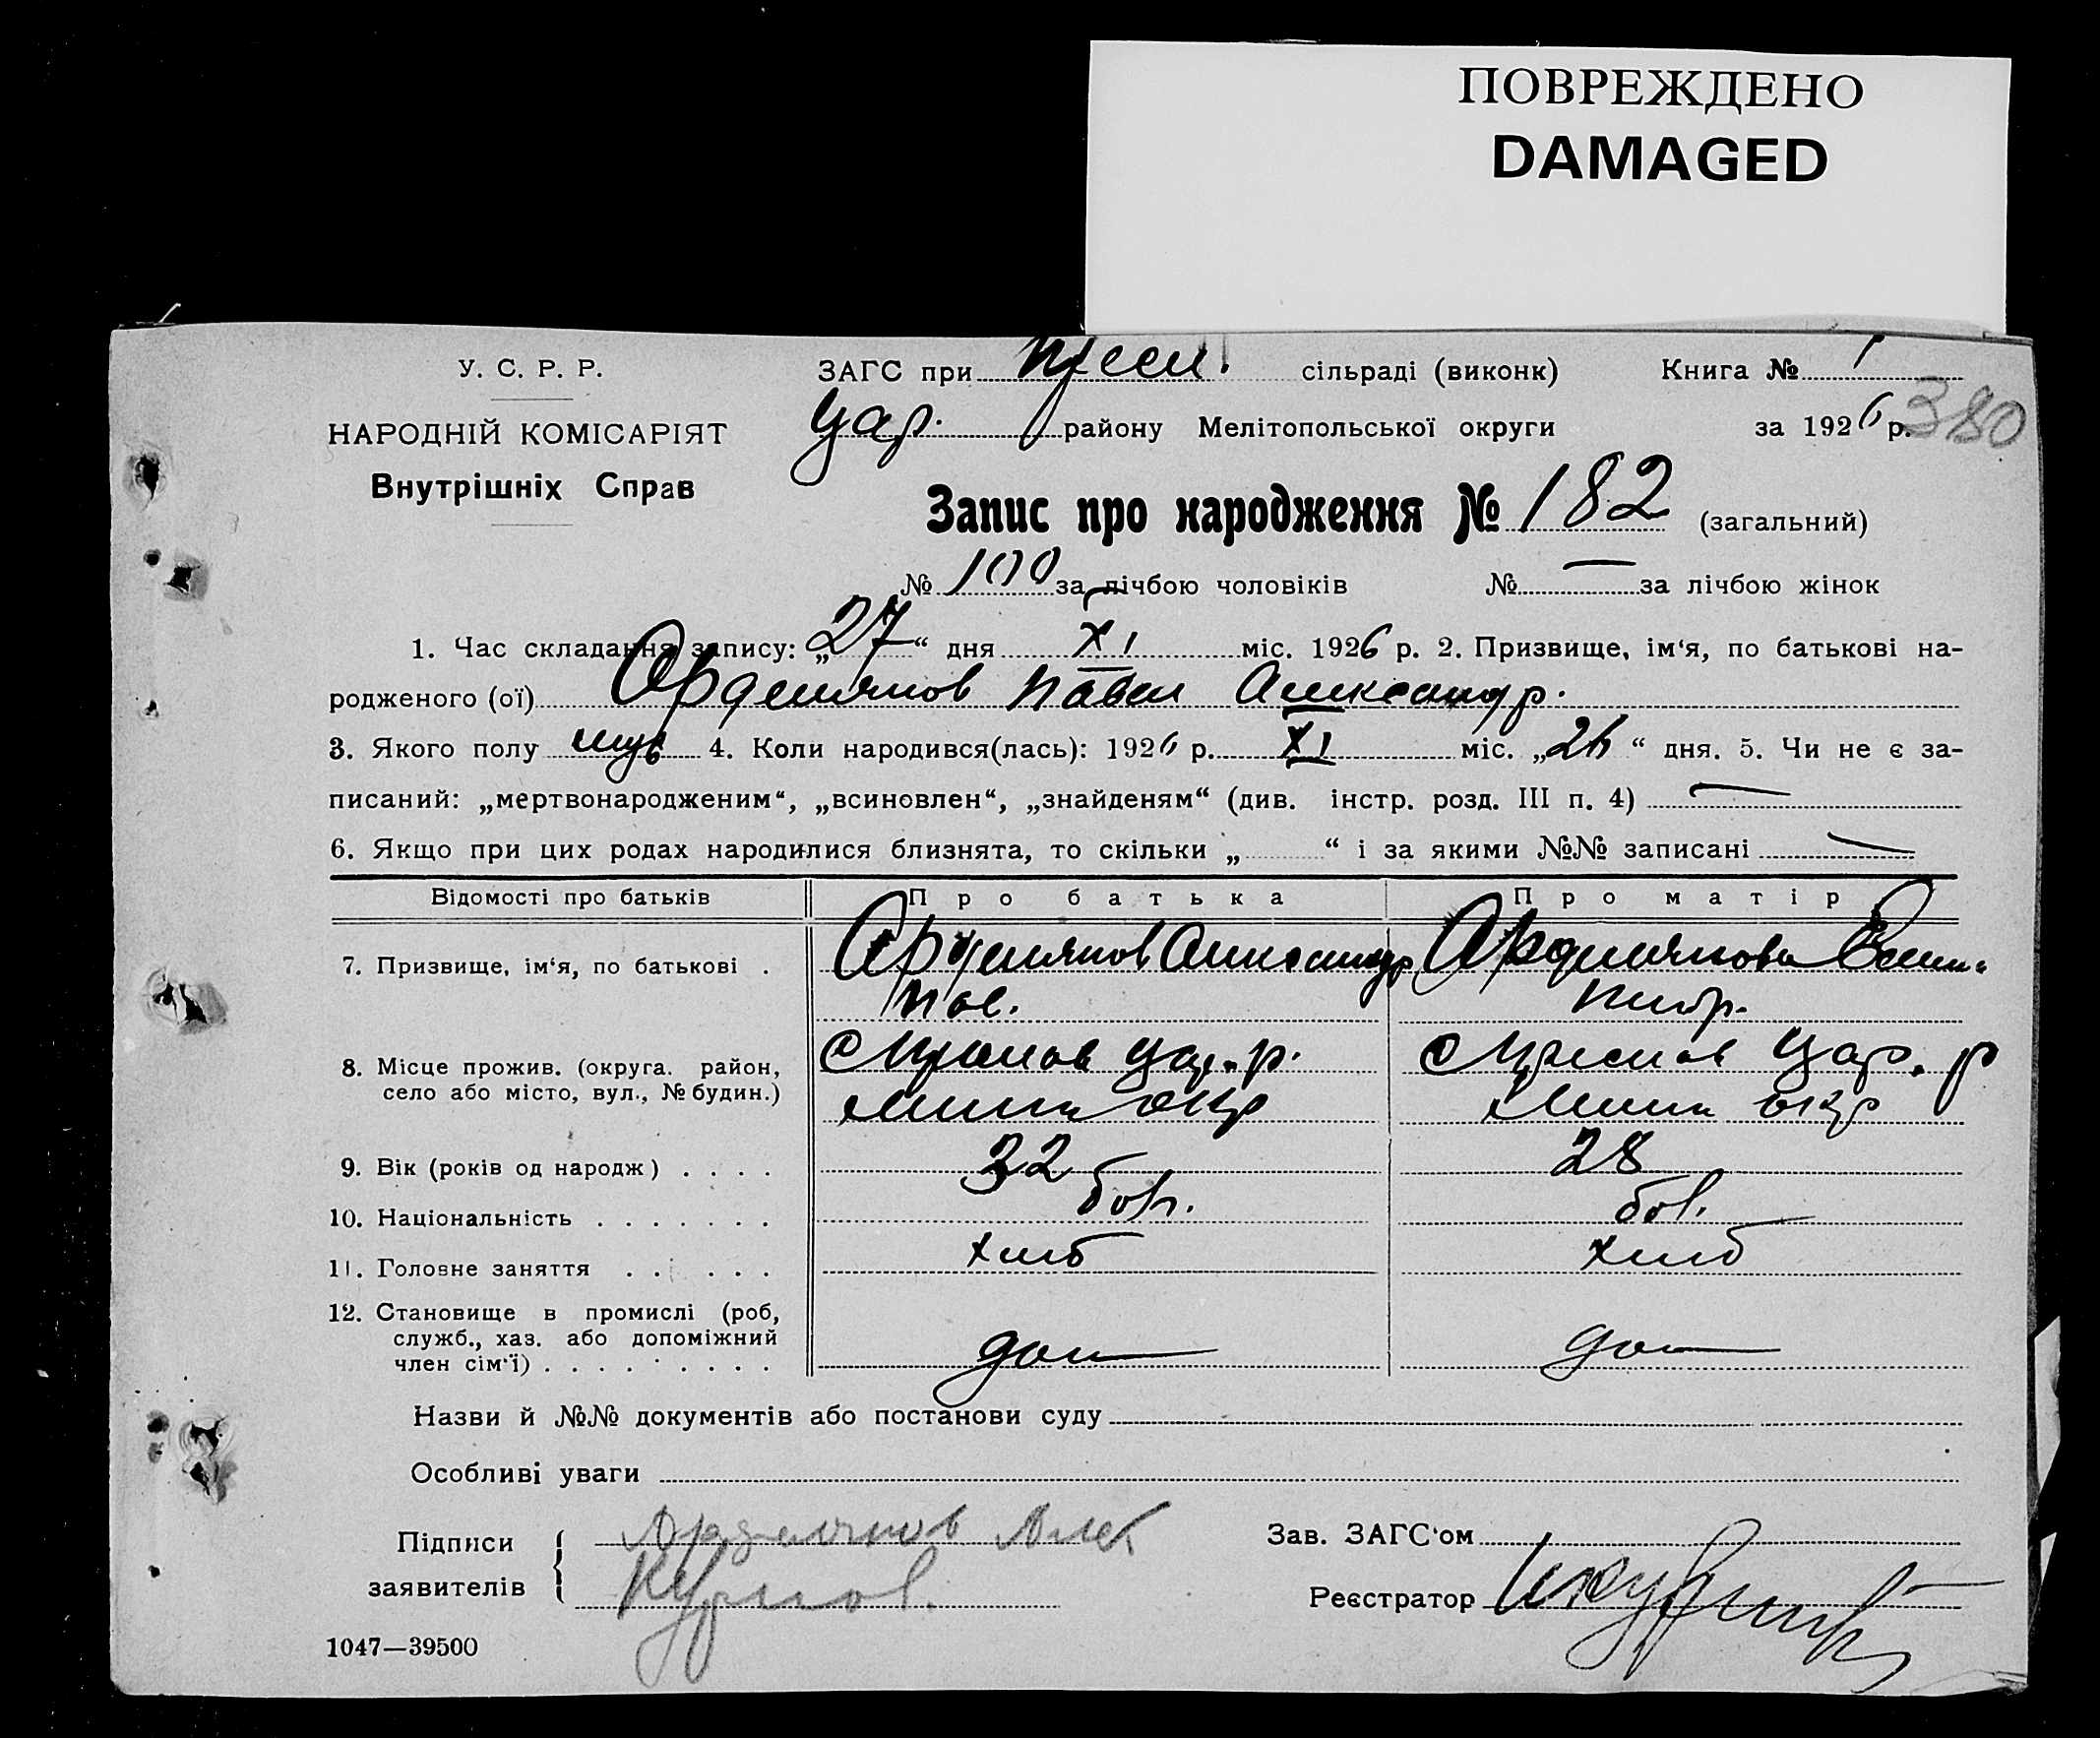 ПОВРЕЖДЕНО
DAMAGED
У. С. Р. Р.
НАРОДНІЙ КОМІСАРІЯТ
Внутрішніх Справ
ЗАГС при сільраді (виконк) Книга № 1
Цар. району Мелітопольської округи за 1926 р. 380
Запис про народження № 182 (загальний)
№ 100 за лічбою чоловіків № — за лічбою жінок
1. Час складання запису: „27“ дня XI міс. 1926 р. 2. Призвище, ім‘я, по батькові на-
родженого (ої) Арделянов Павел Александр.
3. Якого полу муж 4. Коли народився(лась): 1926 р. XI міс. „26“ дня. 5. Чи не є за-
писаний: „мертвонародженим“, „всиновлен“, „знайденям“ (див. інстр. розд. III п. 4) —
6. Якщо при цих родах народилися близнята, то скільки „ “ і за якими №№ записані —
Відомості про батьків Про батька Про матір
7. Призвище, ім‘я, по батькові . Арделянов Александр Арделянова
Пав.
8. Місце прожив. (округа. район, Цар. р. Цар. р
село або місто, вул., № будин.) окр окр
9. Вік (років од народж) . . . . 32 28
10. Національність . . . . . . . бол. бол.
11. Головне заняття . . . . . . хліб хліб
12. Становище в промислі (роб,
служб., хаз. або допоміжний
член сім‘ї) . . . . . . . . .
Назви й №№ документів або постанови суду
Особливі уваги
Підписи Арделянов Алек Зав. ЗАГС‘ом
заявителів Курков. Реєстратор
1047—39500